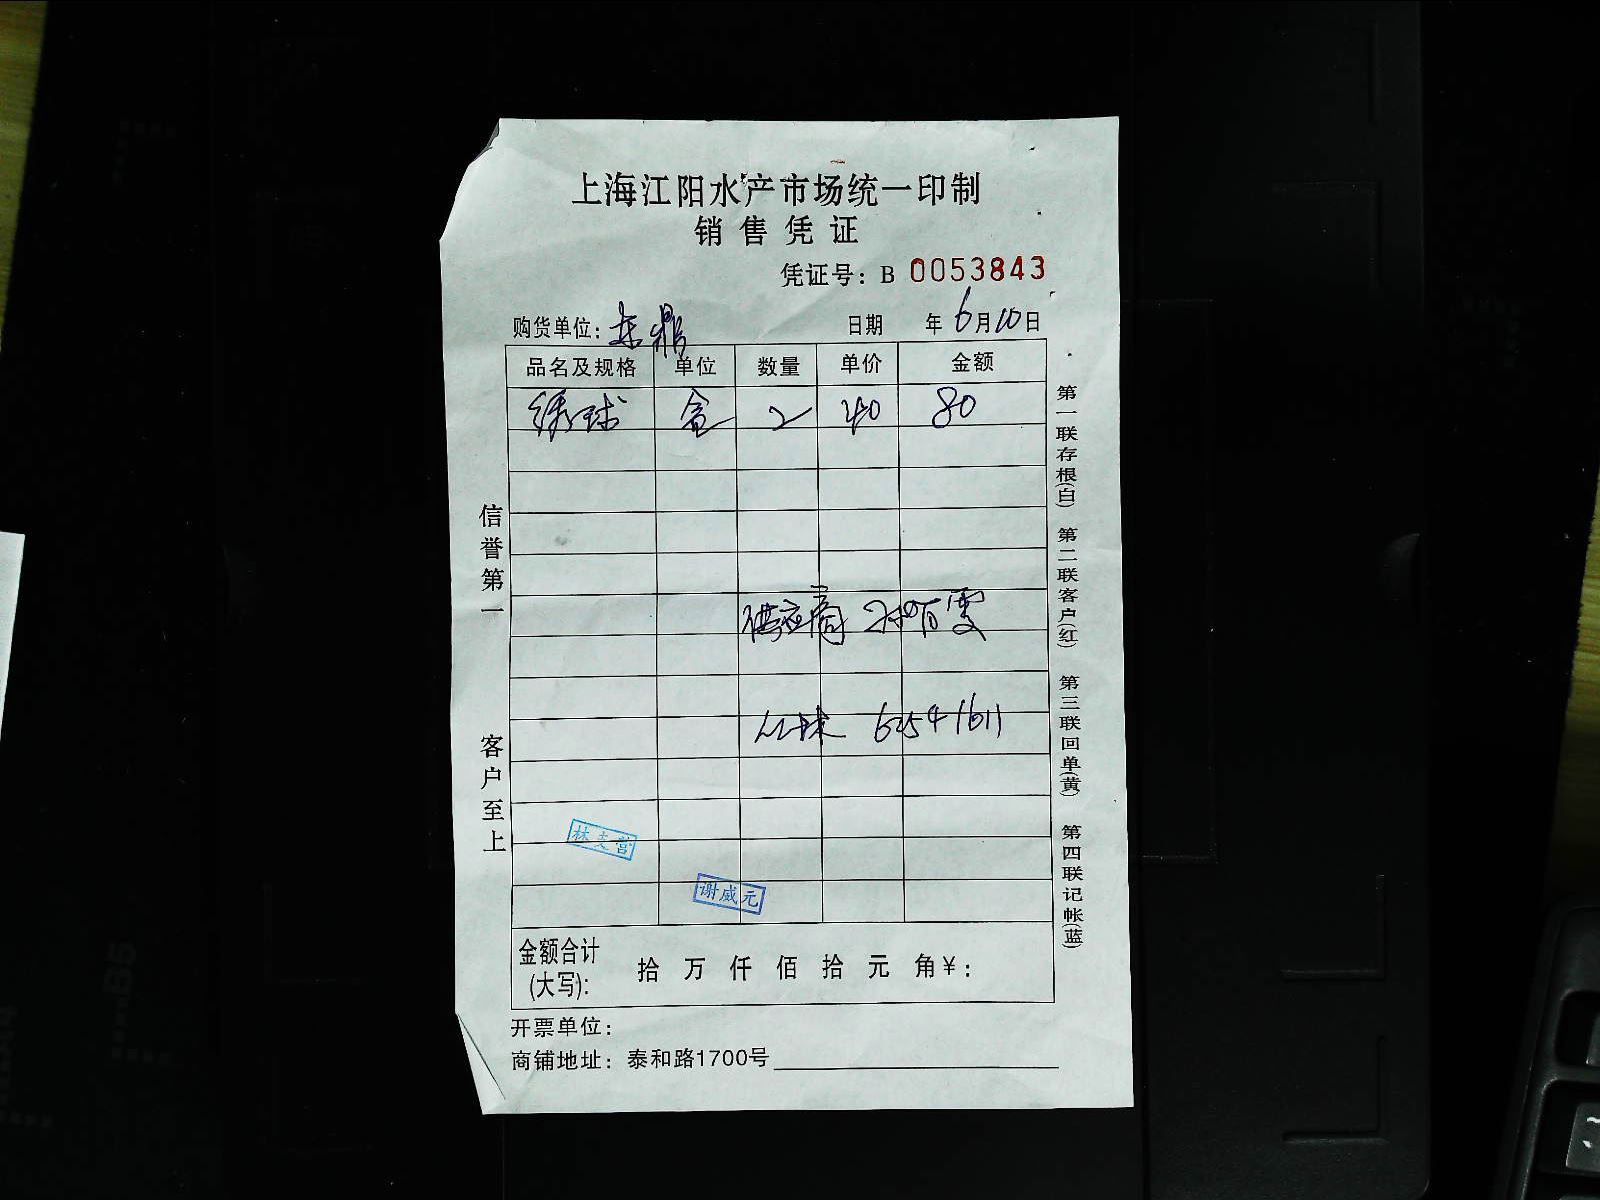 上海江阳水产市场统一印制
销售凭证
凭证号：B 0053843
购货单位：东鼎
日期 年 6月10日
品名及规格 单位 数量 单价 金额
绣球 盒 2 40 80
供应商
62541611
林支营
谢威元
金额合计
(大写): 拾 万 仟 佰 拾 元 角￥:
开票单位:
商铺地址: 泰和路1700号
信誉第一
客户至上
第一联存根(白) 第二联客户(红) 第三联回单(黄) 第四联记帐(蓝)
B5